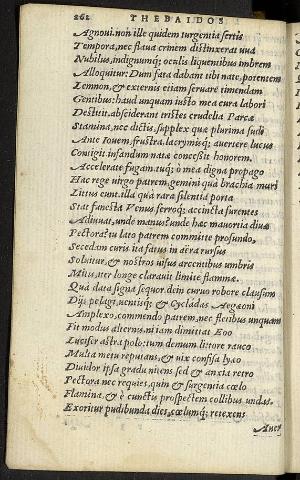 262 THEBAIDOS
Agnoui. non ille quidem turgentia sertis
Tempora, nec flaua crinem distinxerat uua
Nubilus, indignumq; oculis liquentibus imbrem
Alloquitur: Dum fata dabant tibi nate, potentem
Lemnon, & externis etiam seruare timendam
Gentibus: haud unquam iusto mea cura labori
Destitit. absciderant tristes crudelia Parcæ
Stamina, nec dictis, supplex quæ plurima fudi
Ante Iouem, frustra, lacrymisq; auertere luctus
Contigit. infandum natæ concessit honorem.
Accelerate fugam. tuq; ô mea digna propago
Hac rege uirgo patrem, gemini qua brachia muri
Littus eunt. illa qua rara silentia porta
Stat funesta Venus ferroq; accincta furentes
Adiuuat, unde manus? unde hæc mauortia diuæ
Pectora? tu lato patrem committe profundo.
Secedam curis ita fatus in aëra rursus
Soluitur, & nostros uisus arcentibus umbris
Mitis, iter longe clarauit limite flammæ.
Qua data signa sequor. dein curuo robore clausum
Dijs pelagi, uentisq; & Cycladas Aegæoni
Amplexo, commendo patrem, nec fletibus unquam
Fit modus alternis, ni iam dimittat Eoo
Lucifer astra polo: tum demum littore rauco
Multa metu reputans, & uix confisa Lyæo
Diuidor ipsa gradu nitens sed & anxia retro
Pectora nec requies, quin & surgentia cœlo
Flamina, & è cunctis prospectem collibus undas.
Exoritur pudibunda dies, cœlumq; retexens
Auer